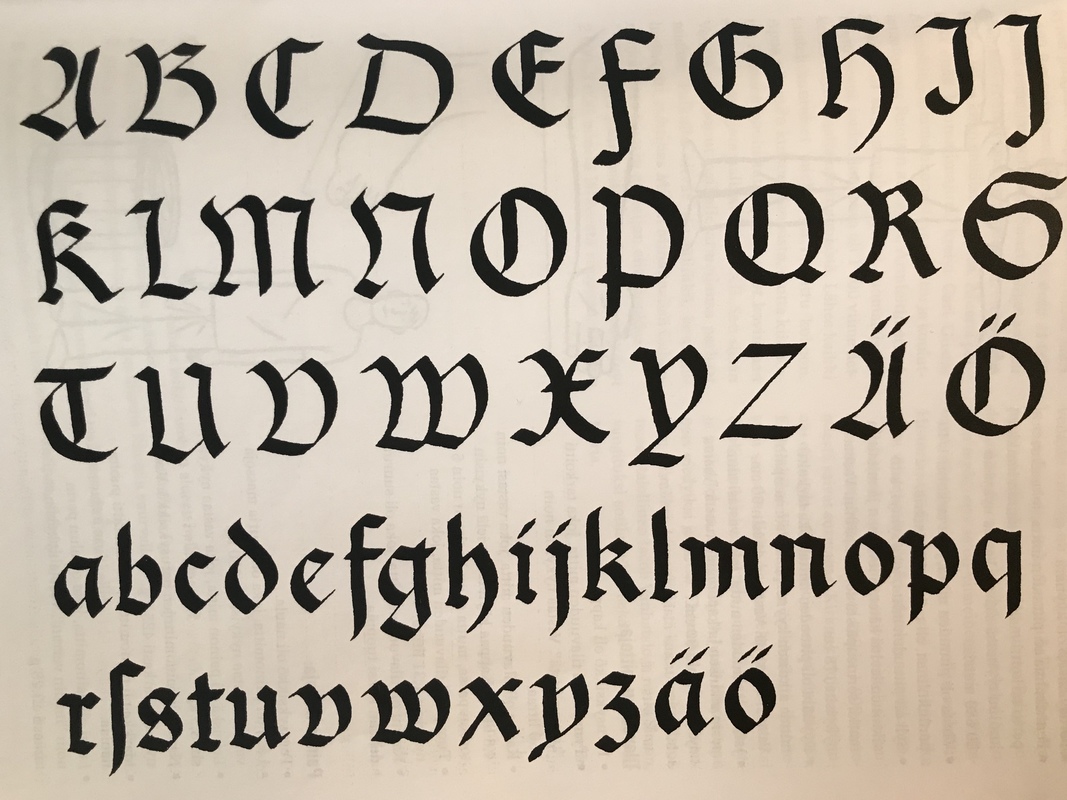 ABCDEFGHIJ
KLMNOPQRS
TUVWXYZÄÖ
abcdefghijklmnopq
rſstuvwxyzäö